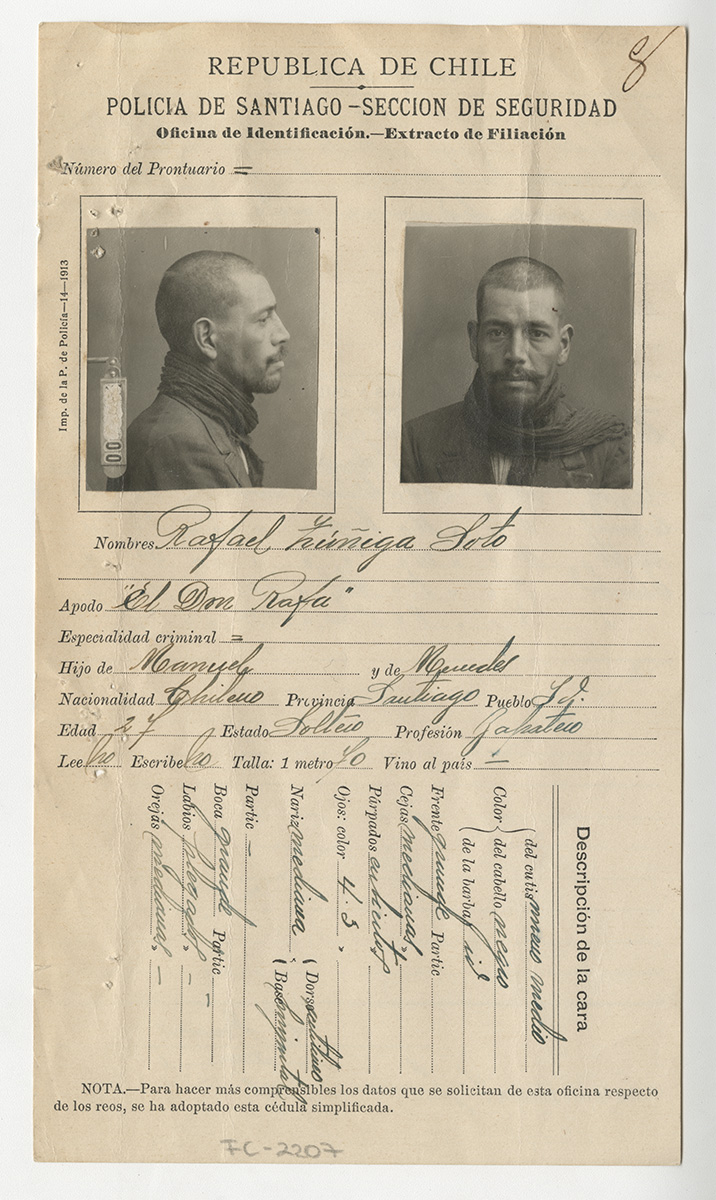 8
REPUBLICA DE CHILE
POLICIA DE SANTIAGO-SECCION DE SEGURIDAD
Oficina de Identificación.—Extracto de Filiación
Número del Prontuario =
Imp. de la P. de Policía—14—1913
00
Nombres Rafael Zúñiga Soto
Apodo "El Don Rafa"
Especialidad criminal =
Hijo de Manuel y de Mercedes
Nacionalidad Chileno Provincia Santiago Pueblo Id.
Edad 27 Estado Soltero Profesión Zapatero
Lee no Escribe no Talla: 1 metro 70 Vino al país —
Descripción de la cara
Color { del cutis medio
del cabello negro
de la barba id
Frente grande Partic
Cejas medianas "
Párpados cubiertos
Ojos: color 4.3 "
Nariz mediana { Dorso
" { Base
Partic —
Boca grande Partic —
Labios " —
Orejas medianas " —
NOTA.—Para hacer más comprensibles los datos que se solicitan de esta oficina respecto
de los reos, se ha adoptado esta cédula simplificada.
FC-2207